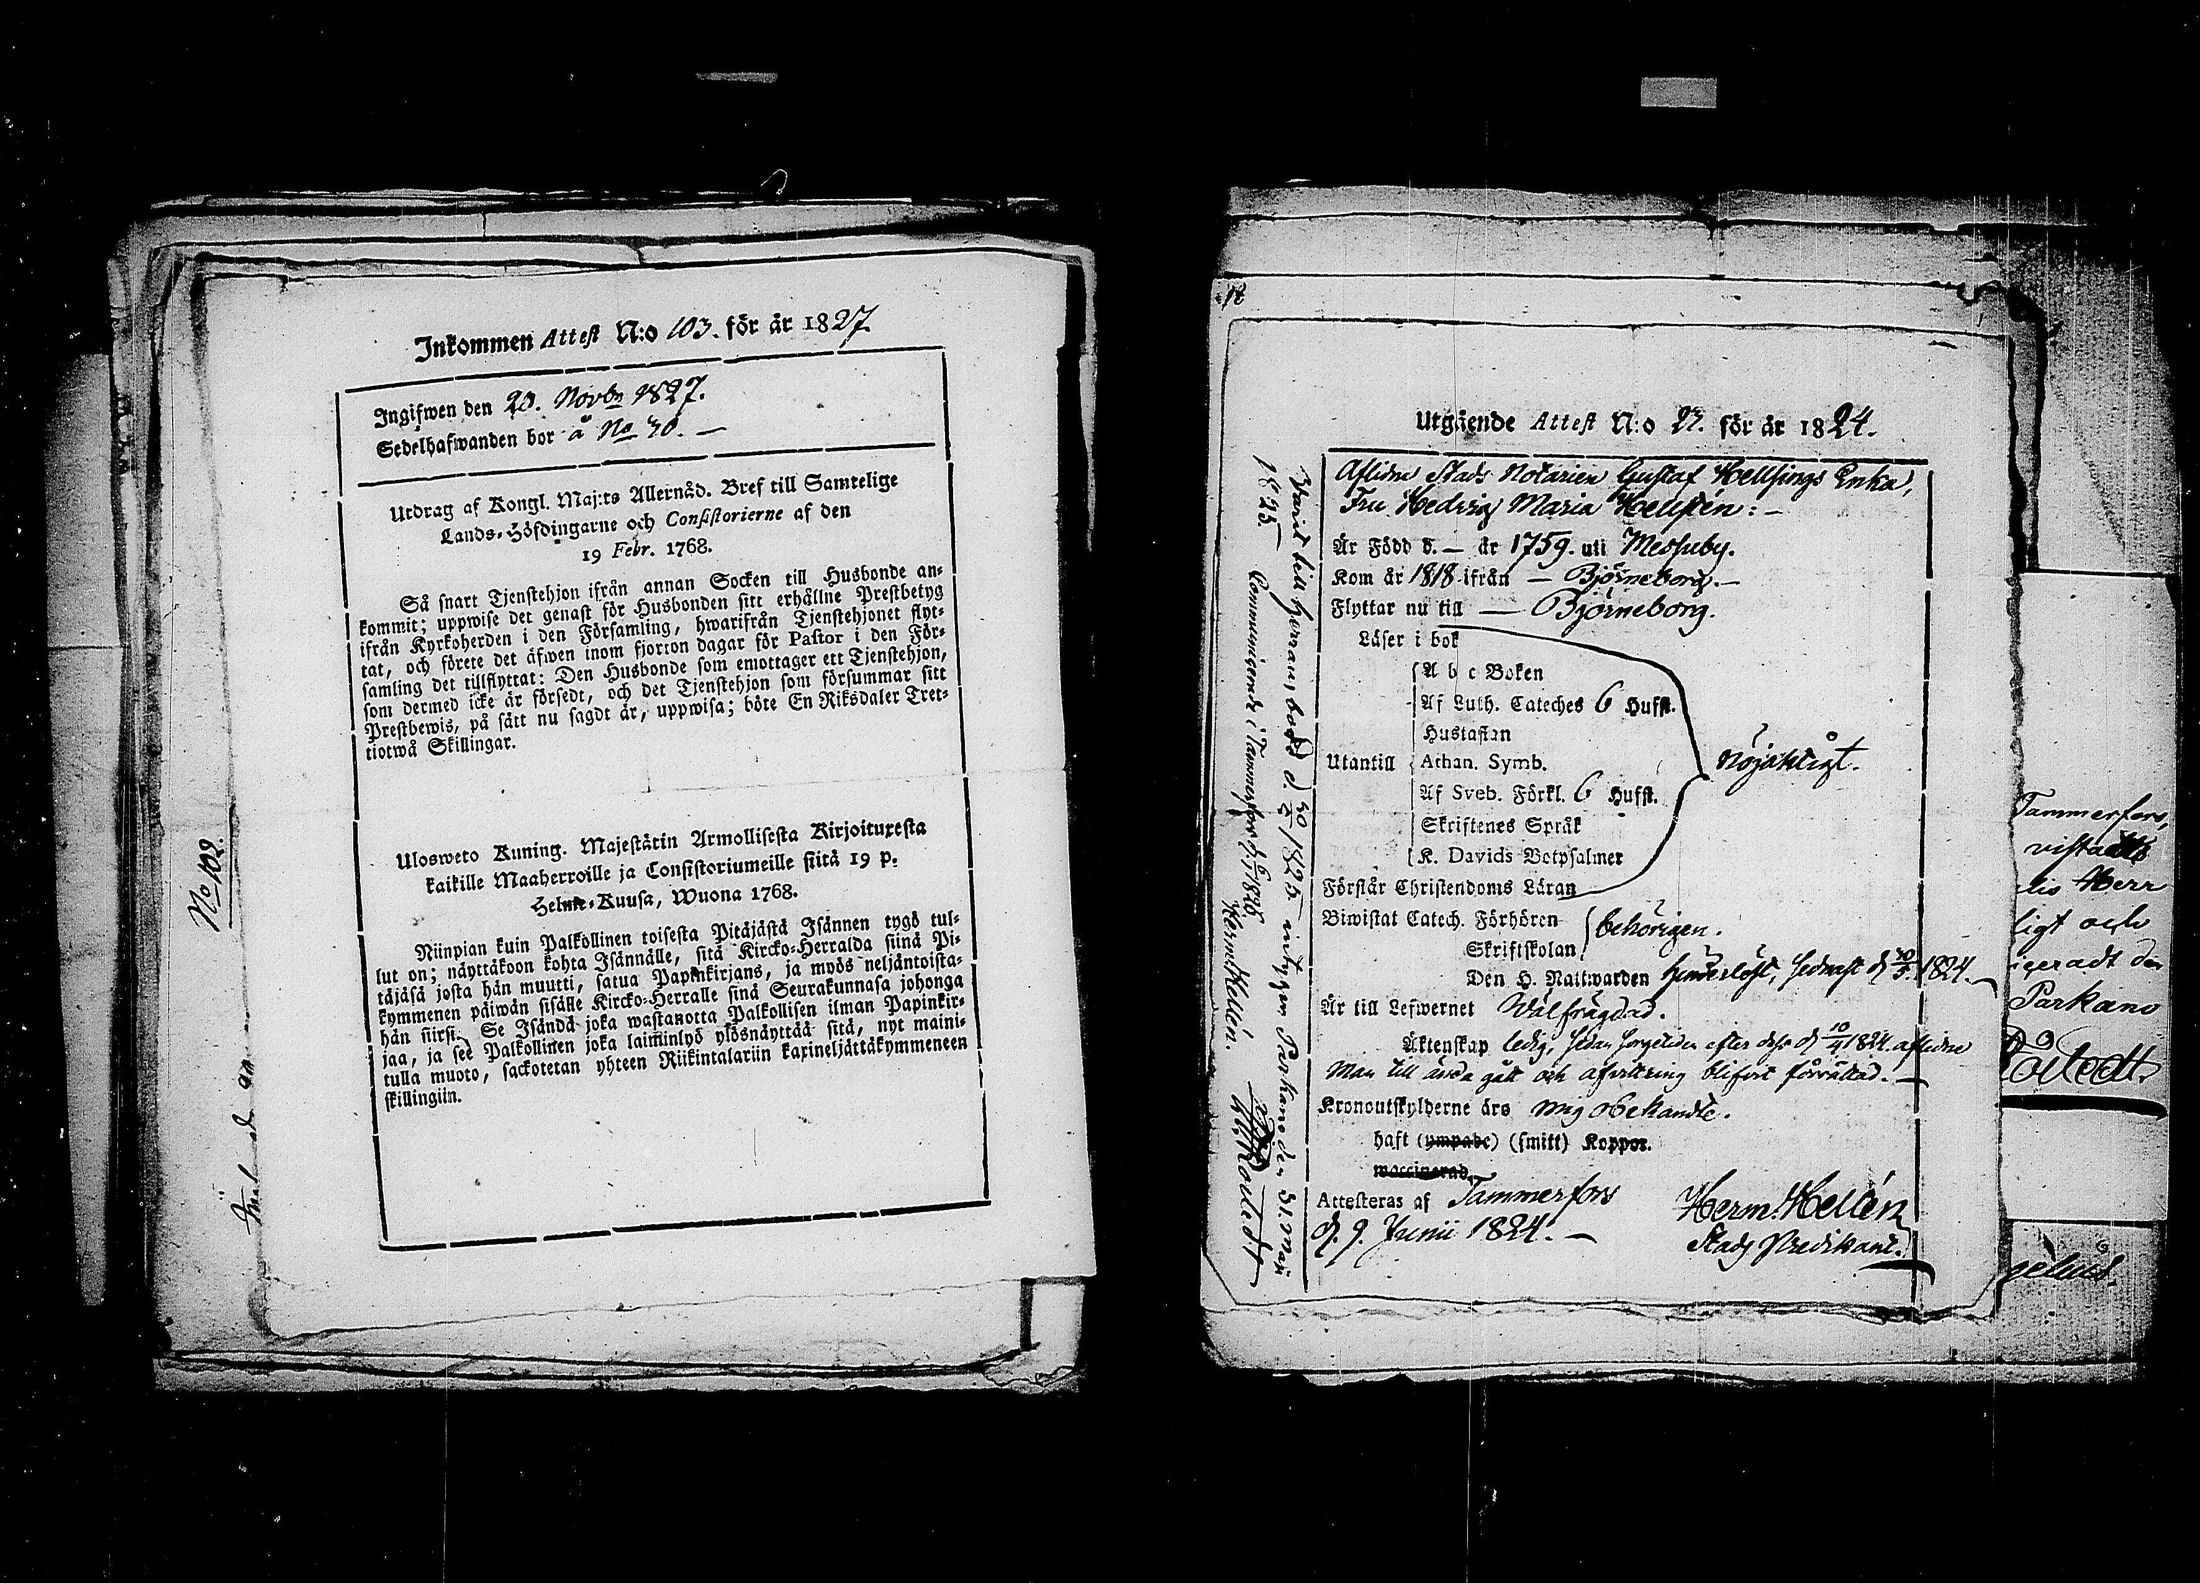 Inkommen Attest N:o 103. för år 1827.
Ingifwen den 20. Novbr 1827.
Sedelhafwanden bor å No 30. —
Utdrag af Kongl. Maj:ts Allernåd. Bref till Samtelige
Lands-Höfdingarne och Consistorierne af den
19 Febr. 1768.
Så snart Tjenstehjon ifrån annan Socken till Husbonde an-
kommit; uppwise det genast för Husbonden sitt erhållne Prestbetyg
ifrån Kyrkoherden i den Församling, hwarifrån Tjenstehjonet flyt-
tat, och förete det äfwen inom fjorton dagar för Pastor i den För-
samling det tillflyttat: Den Husbonde som emottager ett Tjenstehjon,
som dermed icke är försedt, och det Tjenstehjon som försummar sitt
Prestbewis, på sätt nu sagdt är, uppwisa; böte En Riksdaler Tret-
tiotwå Skillingar.
Ulosweto Kuning. Majestätin Armollisesta Kirjoituxesta
kaikille Maaherroille ja Consistoriumeille siitä 19 p.
Helme-Kuusa, Wuona 1768.
Niinpian kuin Palkollinen toisesta Pitäjästä Isännen tygö tul-
lut on; näyttäkoon kohta Isännälle, sitä Kircko-Herralda siinä Pi-
täjäsä josta hän muutti, satua Papinkirjans, ja myös neljäntoista-
kymmenen päiwän sisälle Kircko-Herralle sinä Seurakunnasa johonga
hän siirsi. Se Isändä joka wastanotta Palkollisen ilman Papinkir-
jaa, ja see Palkollinen joka laiminlyö ylösnäyttää sitä, nyt maini-
tulla muoto, sackotetan yhteen Riikintalariin kaxineljättäkymmeneen
skillingiin.
No 102.
18
Utgående Attest N:o 27. för år 1824.
Aflidne Stads Notarien Gustaf Hellsings Enka,
Fru Hedvig Maria Hellsén: —
Är Född d. — år 1759. uti Messuby.
Kom år 1818 ifrån — Björneborg. —
Flyttar nu till — Björneborg.
Läser i bok
A b c Boken
Af Luth. Cateches 6 Hufst.
Hustaflan
Utantill Athan. Symb. nöjaktigt.
Af Sveb. Förkl. 6 Hufst.
Skriftenes Språk
K. Davids Botpsalmer
Förstår Christendoms Läran
Biwistat Catech. Förhören behörigen.
Skriftskolan
Den H. Nattwarden sednast d. 1824.
Är till Lefwernet Välfrägdad.
Äktenskap ledig, sedan efter dess d. 10/4 1824. aflidne
Man till ända gått och afvittring blifvit förrättad. —
Kronoutskylderne äro mig obekandte.
haft (ympade) (smitt) Koppor.
waccinerad
Attesteras af Tammerfors Herm. Hellén
d. 9. Junii 1824. — Stads Predikant.
Varit till Herrans bord d. 1825 intygar Parkano den 31 Maji
1825 —
Communicerade i Tammerfors d. 1826 Herm Hellén.
Tammerfors,
vistadts
Herr
ligt och
Parkano